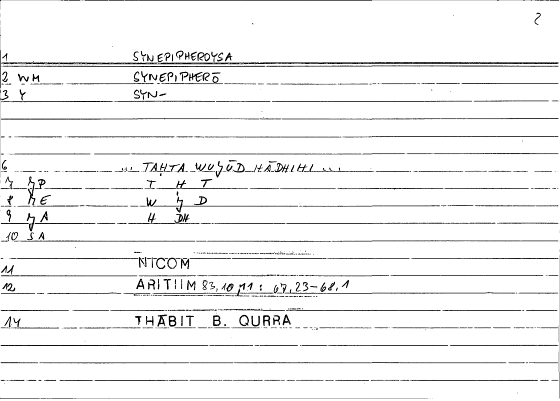 2
1 SYNEPIPHEROYSA
2 WH SYNEPIPHERŌ
3 Y SYN-
6 ... TAḤTA WUǦŪD HĀDHIHI ...
7 P T Ḥ T
8 E W Ǧ D
9 A H DH
10 SA
11 NICOM
12 ARITIIM 83,10,11 : 67,23-68,1
14 THĀBIT B. QURRA